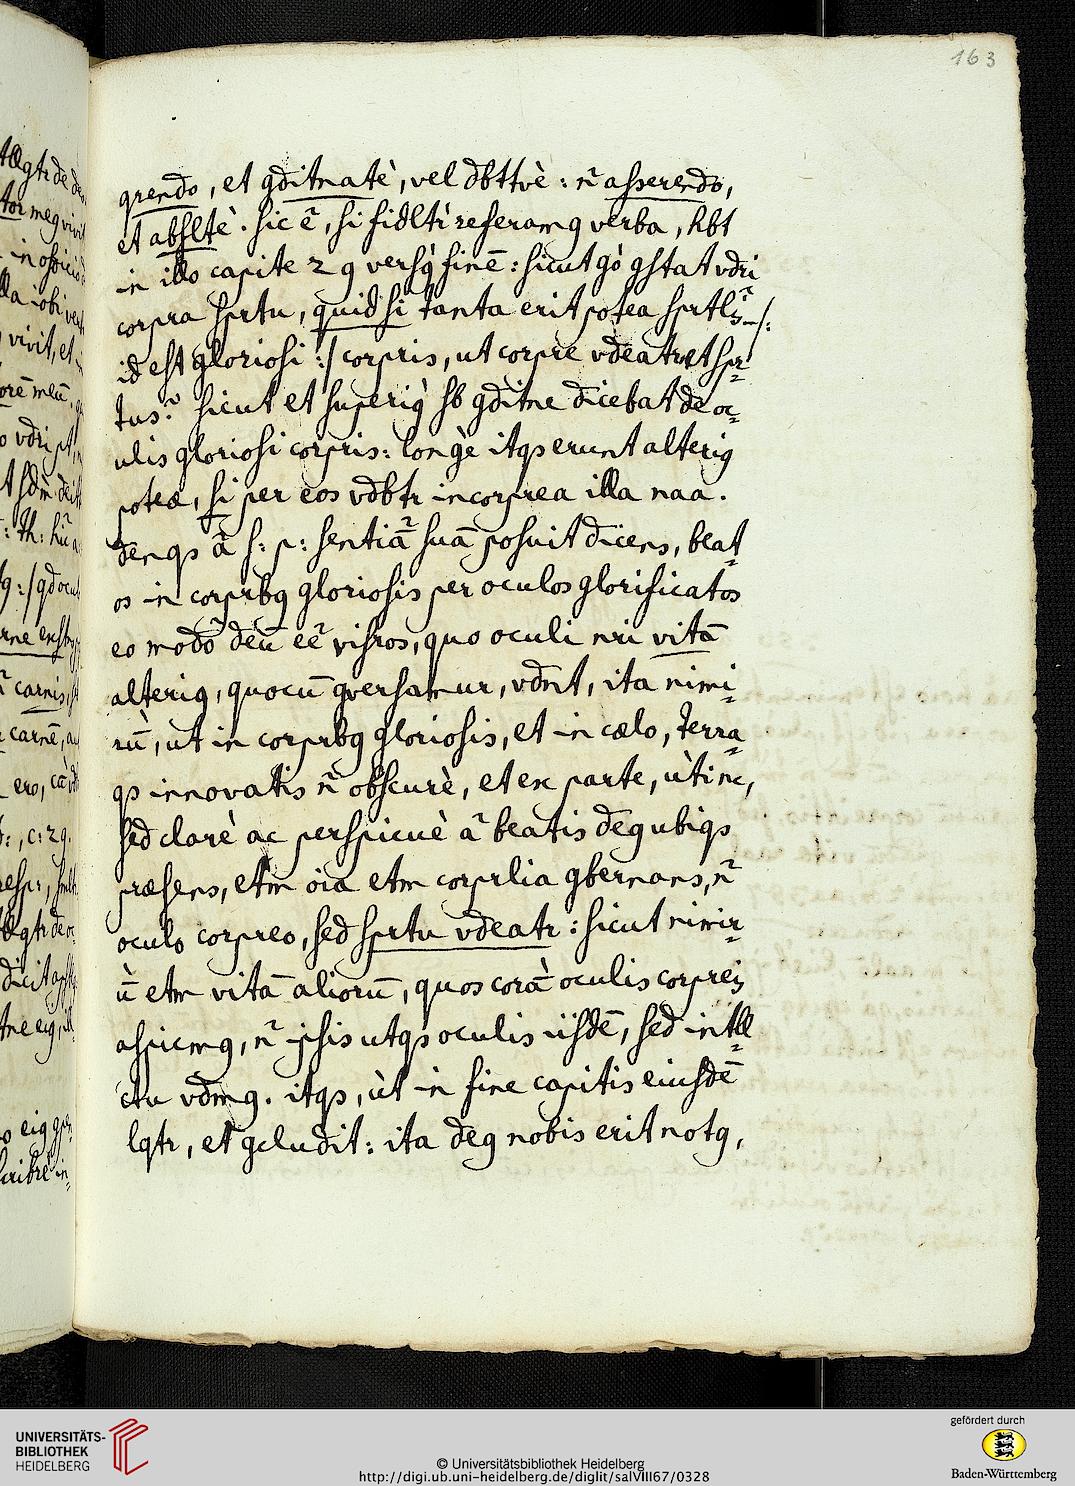 163
qrendo, et gditnatè, vel dbttvè: n̄ asserendo,
et absltè. sic ē, si fidltr̀ referamg verba, hbt
in illo capite 29 versg̀ finē: sicut gò gstat vdri
corpra sprtu, quid si tanta erit potea sprtlis
id est gloriosi :/ corpris, ut corpre vdeatr et spr=
tus? sicut et superig̀ sb gditne dicebat de oc=
ulis gloriosi corpris: longè itqs erunt alterig
poteæ, si per eos vdbtr incorprea illa naa.
denqs ā s: p: sentiā suā posuit dicens, beat=
os in corprbg gloriosis per oculos glorificatos
eo modo deū eē visros, quo oculi nri vitā
alterig, quocū gversamur, vdnt, ita nimi=
rū, ut in corprbg gloriosis, et in cælo, terra=
qs innovatis n̄ obscurè, et ex parte, ùti nc,
sed clarè ac perspicuè ā beatis deg ubiqs
præsens, etm oīa etm corprlia gbernans, n̄
oculo corpreo, sed sprtu vdeatr: sicut nimir=
ū etm vitā aliorū, quos corā oculis corpreis
aspicmg, n̄ ipsis utqs oculis iisdē, sed intlle=
ctu vdmg. itqs, ùt in fine capitis eiusdē
lqtr, et gcludit: ita deg nobis erit notg,
UNIVERSITÄTS-
BIBLIOTHEK
HEIDELBERG
© Universitätsbibliothek Heidelberg
http://digi.ub.uni-heidelberg.de/diglit/salVIII67/0328
gefördert durch
Baden-Württemberg